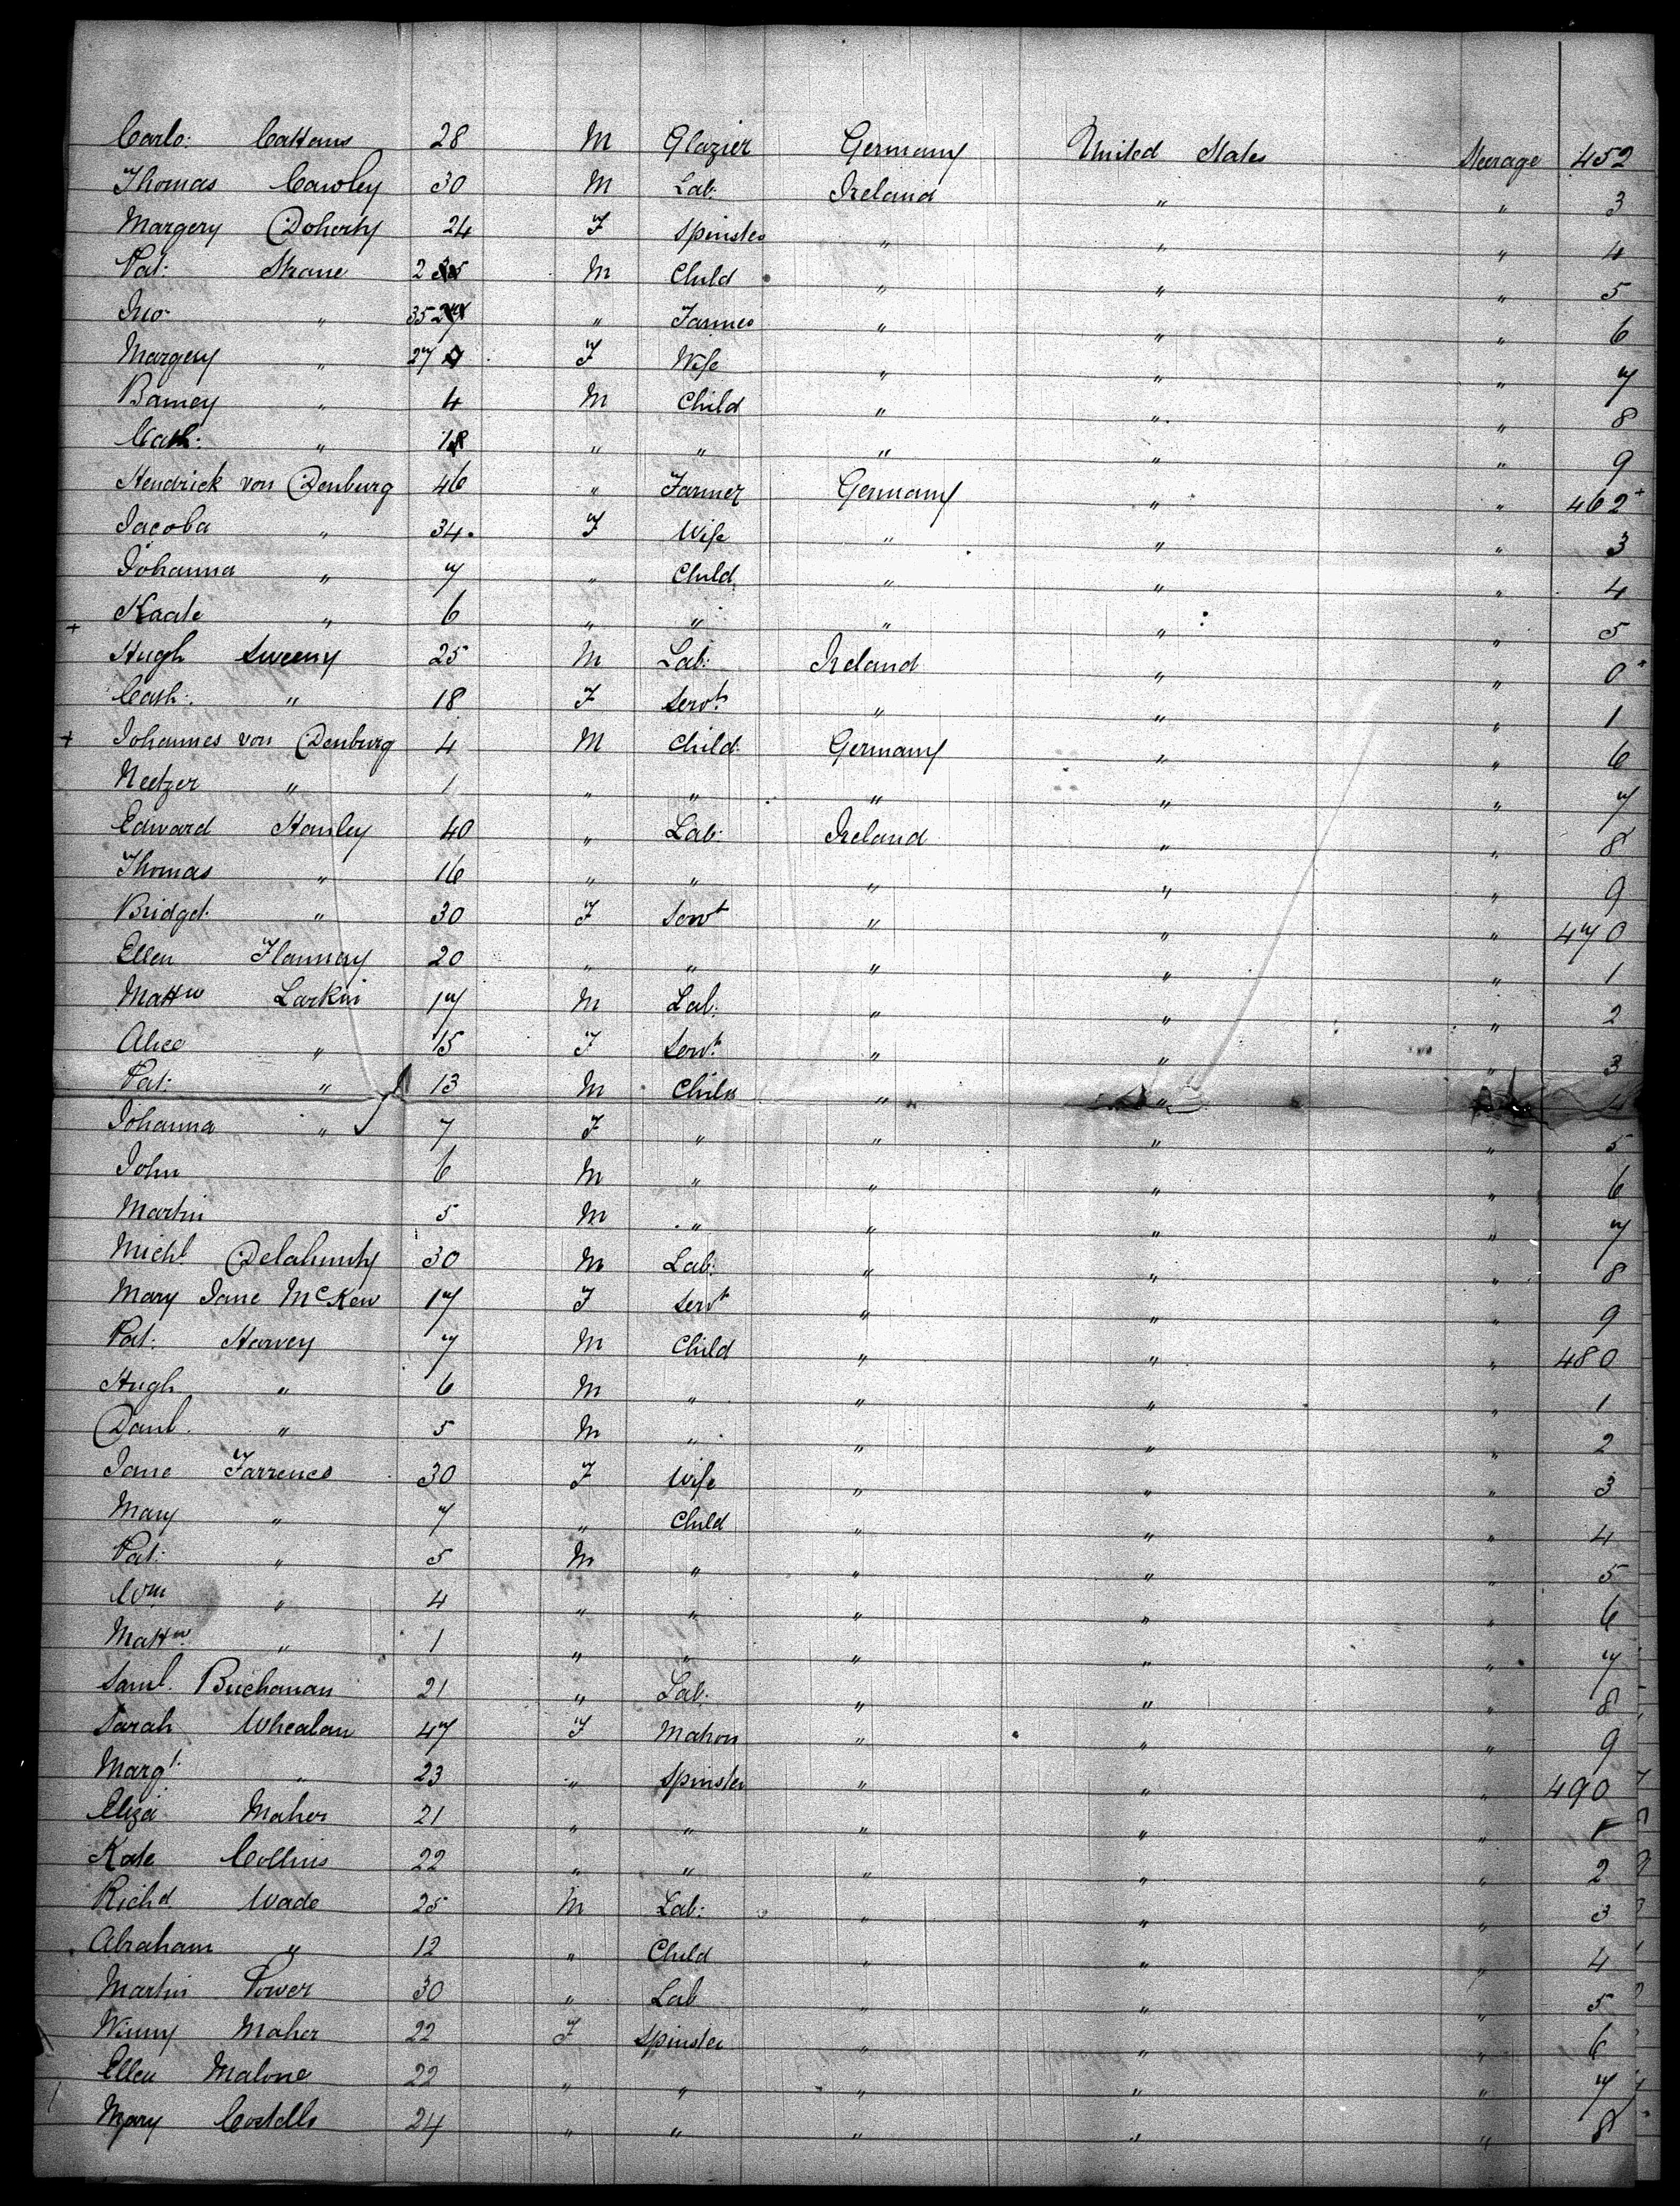 Carlo: Cattans 28 M Glazier Germany United States Steerage 452
Thomas Cawley 30 M Lab: Ireland " " 3
Margery Doherty 24 F Spinster " " " 4
Pat: Shane 2 M Child " " " 5
Jno " 35 " Farmer " " " 6
Margery " 27 F Wife " " " 7
Barney " 4 M Child " " " 8
Cath: " 1 " " " " " 9
Hendrick von Denburg 46 " Farmer Germany " " 462+
Jacoba " 34 F Wife " " " 3
Johanna " 7 " Child " " " 4
Kaate " 6 " " " " " 5
+ Hugh Sweeny 25 M Lab: Ireland " " 0
Cath: " 18 F Servt " " " 1
+ Johannes von Denburg 4 M Child Germany " " 6
Neetzer " 1 " " " " " 7
Edward Hanley 40 " Lab: Ireland " " 8
Thomas " 16 " " " " " 9
Bridget " 30 F Servt " " " 470
Ellen Flannay 20 " " " " " 1
Mattw Larkin 17 M Lab: " " " 2
Alice " 15 F Servt " " " 3
Pat: " 13 M Child " " " 4
Johanna " 7 F " " " " 5
John 6 M " " " " 6
Martin 5 M " " " " 7
Michl. Delahunty 30 M Lab: " " " 8
Mary Jane McKew 17 F Servt " " " 9
Pat: Harvey 7 M Child " " " 480
Hugh " 6 M " " " " 1
Danl. " 5 M " " " " 2
Jane 30 F Wife " " " 3
Mary " 7 " Child " " " 4
Pat: " 5 M " " " " 5
Wm " 4 " " " " " 6
Mattw " 1 " " " " " 7
Saml. Buchanan 21 " Lab: " " " 8
Sarah Whealan 47 F Matron " " " 9
Margt. " 23 " Spinster " " " 490
Eliza Maher 21 " " " " " 1
Kate Collins 22 " " " " " 2
Richd. Wade 25 M Lab: " " " 3
Abraham " 12 " Child " " " 4
Martin Power 30 " Lab " " " 5
Winny Maher 22 F Spinster " " " 6
Ellen Malone 22 " " " " " 7
Mary Costello 24 " " " " " 8